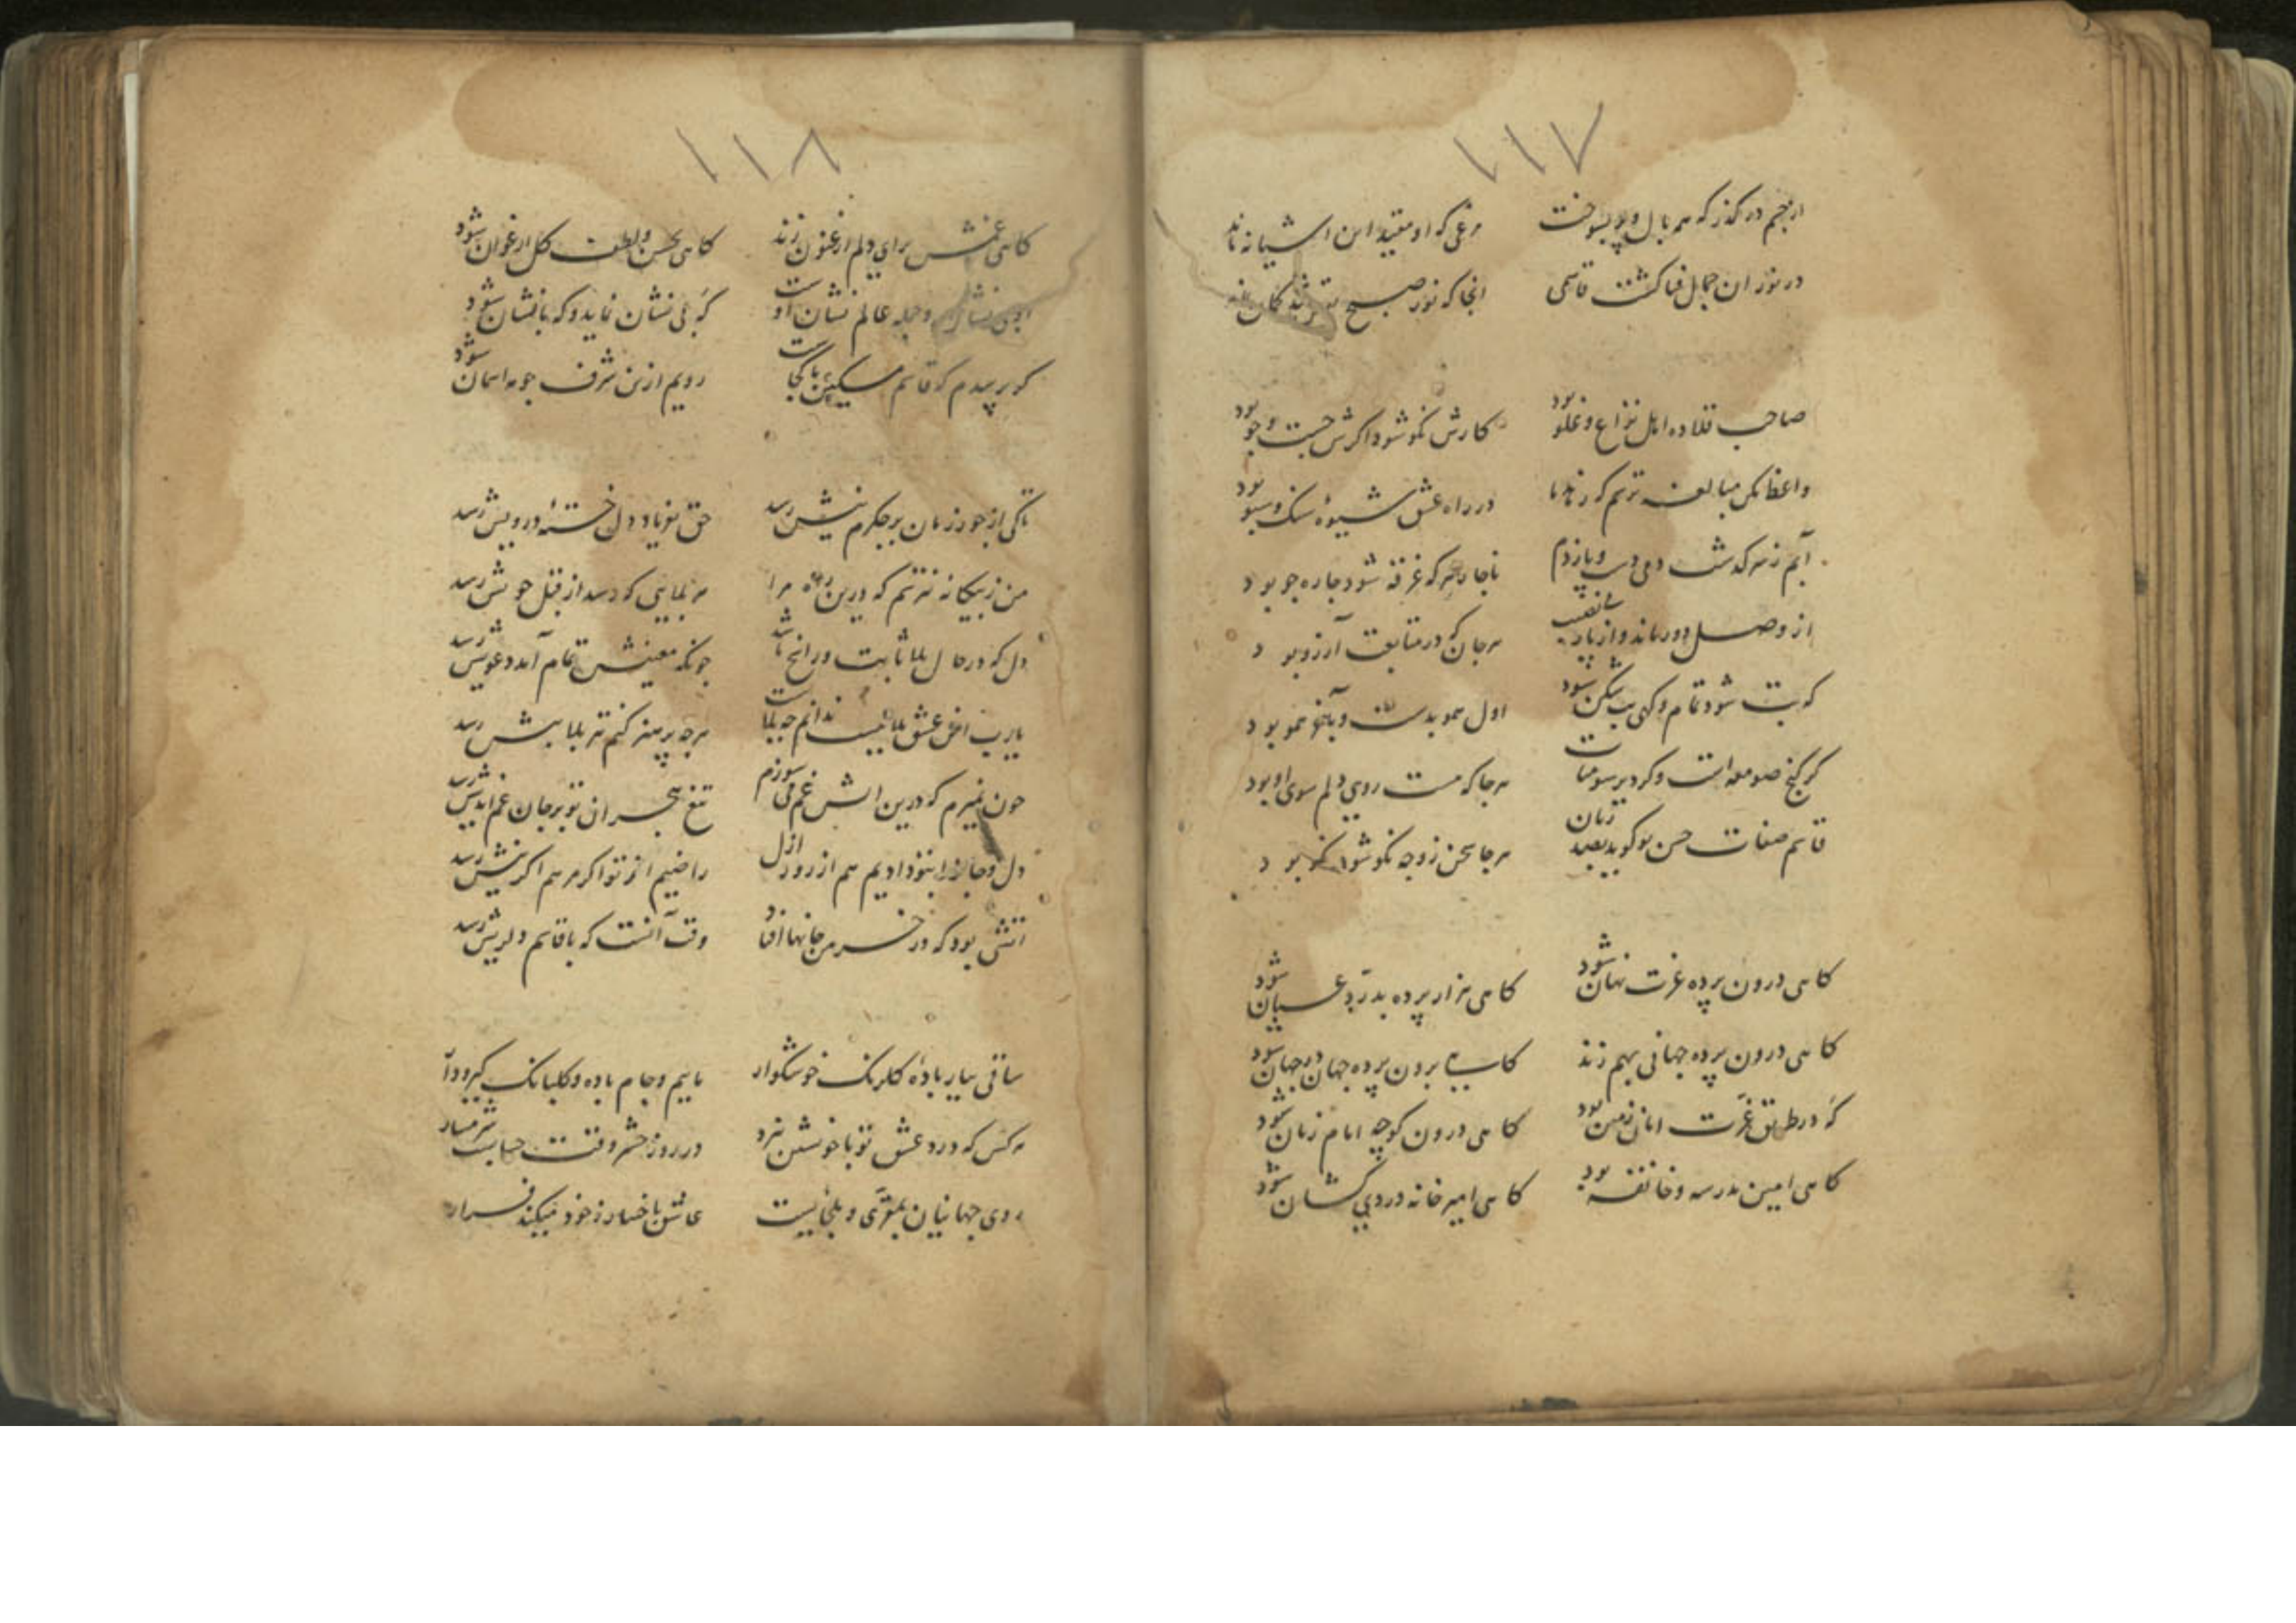 ۱۱۷
از جسم در گذر که هم بال و پر بسوخت مرغی که او مقید این آشیانه ماند
در نور آن جمال فنا گشت قاسمی آنجا که نور صبح
صاحب قلاده اهل نزاع و غلو بود کارش نکو شود اگرش جست و جو بود
واعظ مکن مبالغه ترسم که در راه عشق شیوهٔ سنگ و سبو بود
آبم ز سر گذشت و می زدم ناچار هر که غرقه شود چاره جو بود
از وصل دور ماند و از یار بی نصیب هر جان که در متابعت آرزو بود
گه بت شود تمام و گهی بت شکن شود اول همو بدست و بآخر همو بود
گر کنج صومعه است و گر دیر سومنات هر جا که هست روی دلم سوی او بود
قاسم صفات حسن تو گوید بصد زبان هر جا سخن ز وجه نکو شد نکو بود
گاهی درون پرده عزت نهان شود گاهی هزار پرده بدرد عیان شود
گاهی درون پرده جهانی بهم زند گاهی برون پرده جهان در جهان شود
گه در طریق عزت امان زمین بود گاهی درون کوچه امام زمان شود
گاهی امین مدرسه و خانقه بود گاهی امیر خانه دردی کشان شود
۱۱۸
گاهی غمش برای دلم ارغنون زند گاهی بحسن و لطف گل ارغوان شود
او بی نشان و جمله عالم نشان اوست گه بی نشان نماید و گه بانشان شود
گر پرسدم که قاسم مسکین ما کجاست رویم ازین شرف چو مه آسمان شود
تا کی از جور زمان بر جگرم نیش رسد حق بفریاد دل خستهٔ درویش رسد
من ز بیگانه نترسم که درین راه مرا هر بلایی که رسد از قبل خویش رسد
دل که در حال بلا ثابت و راسخ باشد چونکه معنیش تمام آمد و دعویش رسد
یارب این عشق بلا نیست ندانم چه بلاست هر چه پرهیز کنم تیر بلا بیش رسد
چون نمیرم که درین آتش غم می سوزم تیغ هجران تو بر جان غم اندیش رسد
دل و جان را بتو دادیم هم از روز ازل راضیم از تو اگر مرهم اگر نیش رسد
آتشی بود که در خرمن جانها افتاد وقت آنست که با قاسم دلریش رسد
ساقی بیار بادهٔ گلرنگ خوشگوار ماییم و جام باده و گلبانگ گیرودار
هر کس که درد عشق تو با خویشتن نبرد در روز حشر وقت حسابست شرمسار
روی جهانیان بمقری و ملجاییست عاشق باختیار ز خود میکند فرار